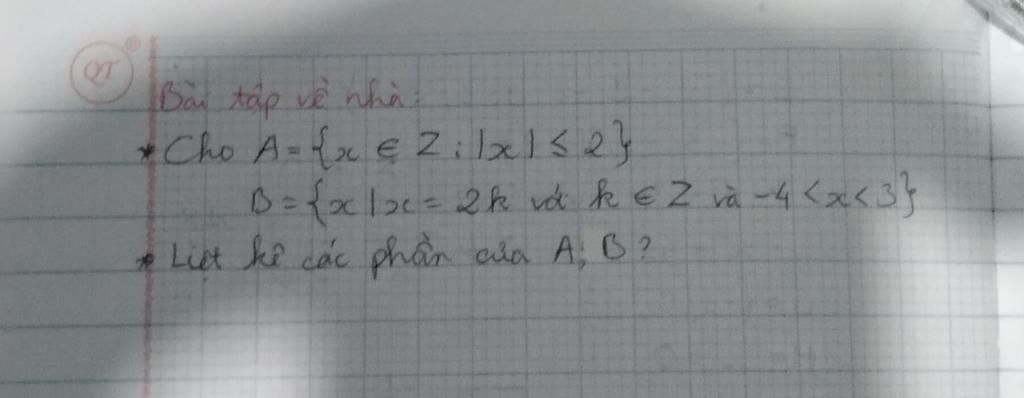 QT
Bài tập về nhà:
* Cho A = {x ∈ Z : |x| ≤ 2}
B = {x | x = 2k với k ∈ Z và -4 < x < 3}
* Liệt kê các phần của A; B?